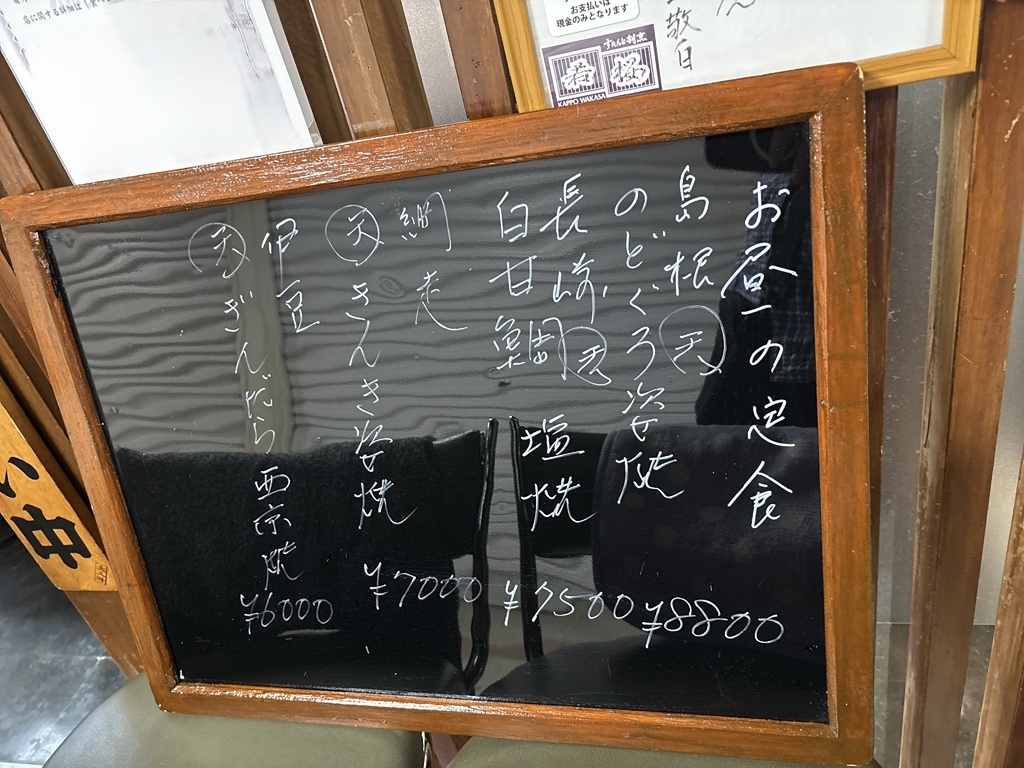 お支払いは
現金のみとなります
すっぽんと割烹
KAPPO WAKASA
敬白
お昼の定食
島根 天
のどぐろ姿焼 ¥8800
長崎 天
白甘鯛 塩焼 ¥7500
網走
天 きんき姿焼 ¥7000
伊豆
天 ぎんだら西京焼 ¥6000